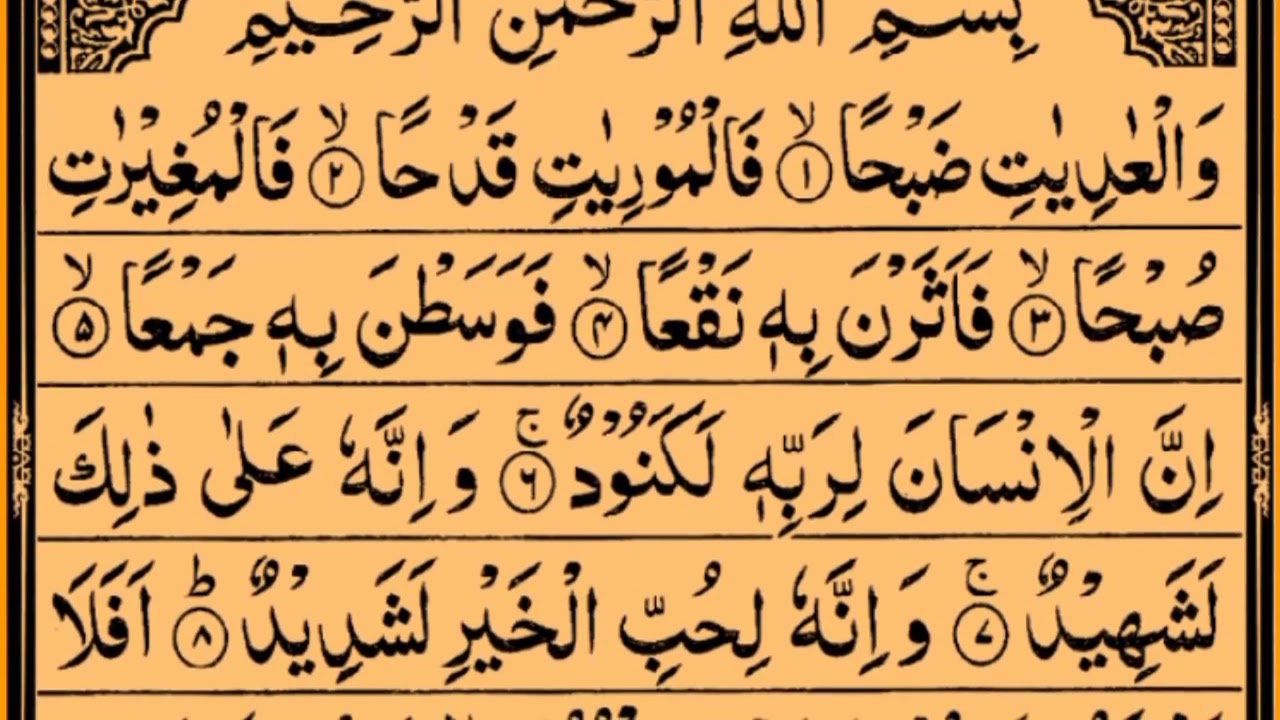 بِسْمِ اللهِ الرَّحْمٰنِ الرَّحِيْمِ
وَالْعٰدِيٰتِ ضَبْحًا ۙ﴿۱﴾ فَالْمُوْرِيٰتِ قَدْحًا ۙ﴿۲﴾ فَالْمُغِيْرٰتِ
صُبْحًا ۙ﴿۳﴾ فَاَثَرْنَ بِهٖ نَقْعًا ۙ﴿۴﴾ فَوَسَطْنَ بِهٖ جَمْعًا ۙ﴿۵﴾
اِنَّ الْاِنْسَانَ لِرَبِّهٖ لَكَنُوْدٌ ۚ﴿۶﴾ وَ اِنَّهٗ عَلٰى ذٰلِكَ
لَشَهِيْدٌ ۚ﴿۷﴾ وَ اِنَّهٗ لِحُبِّ الْخَيْرِ لَشَدِيْدٌ ؕ﴿۸﴾ اَفَلَا